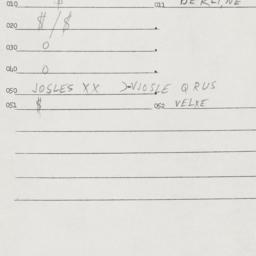 010 $ 011 BERLINE
020 $/$
030 0
040 0
050 JOSLES XX >VIOSLE QRUS
051 $ 052 VELXE